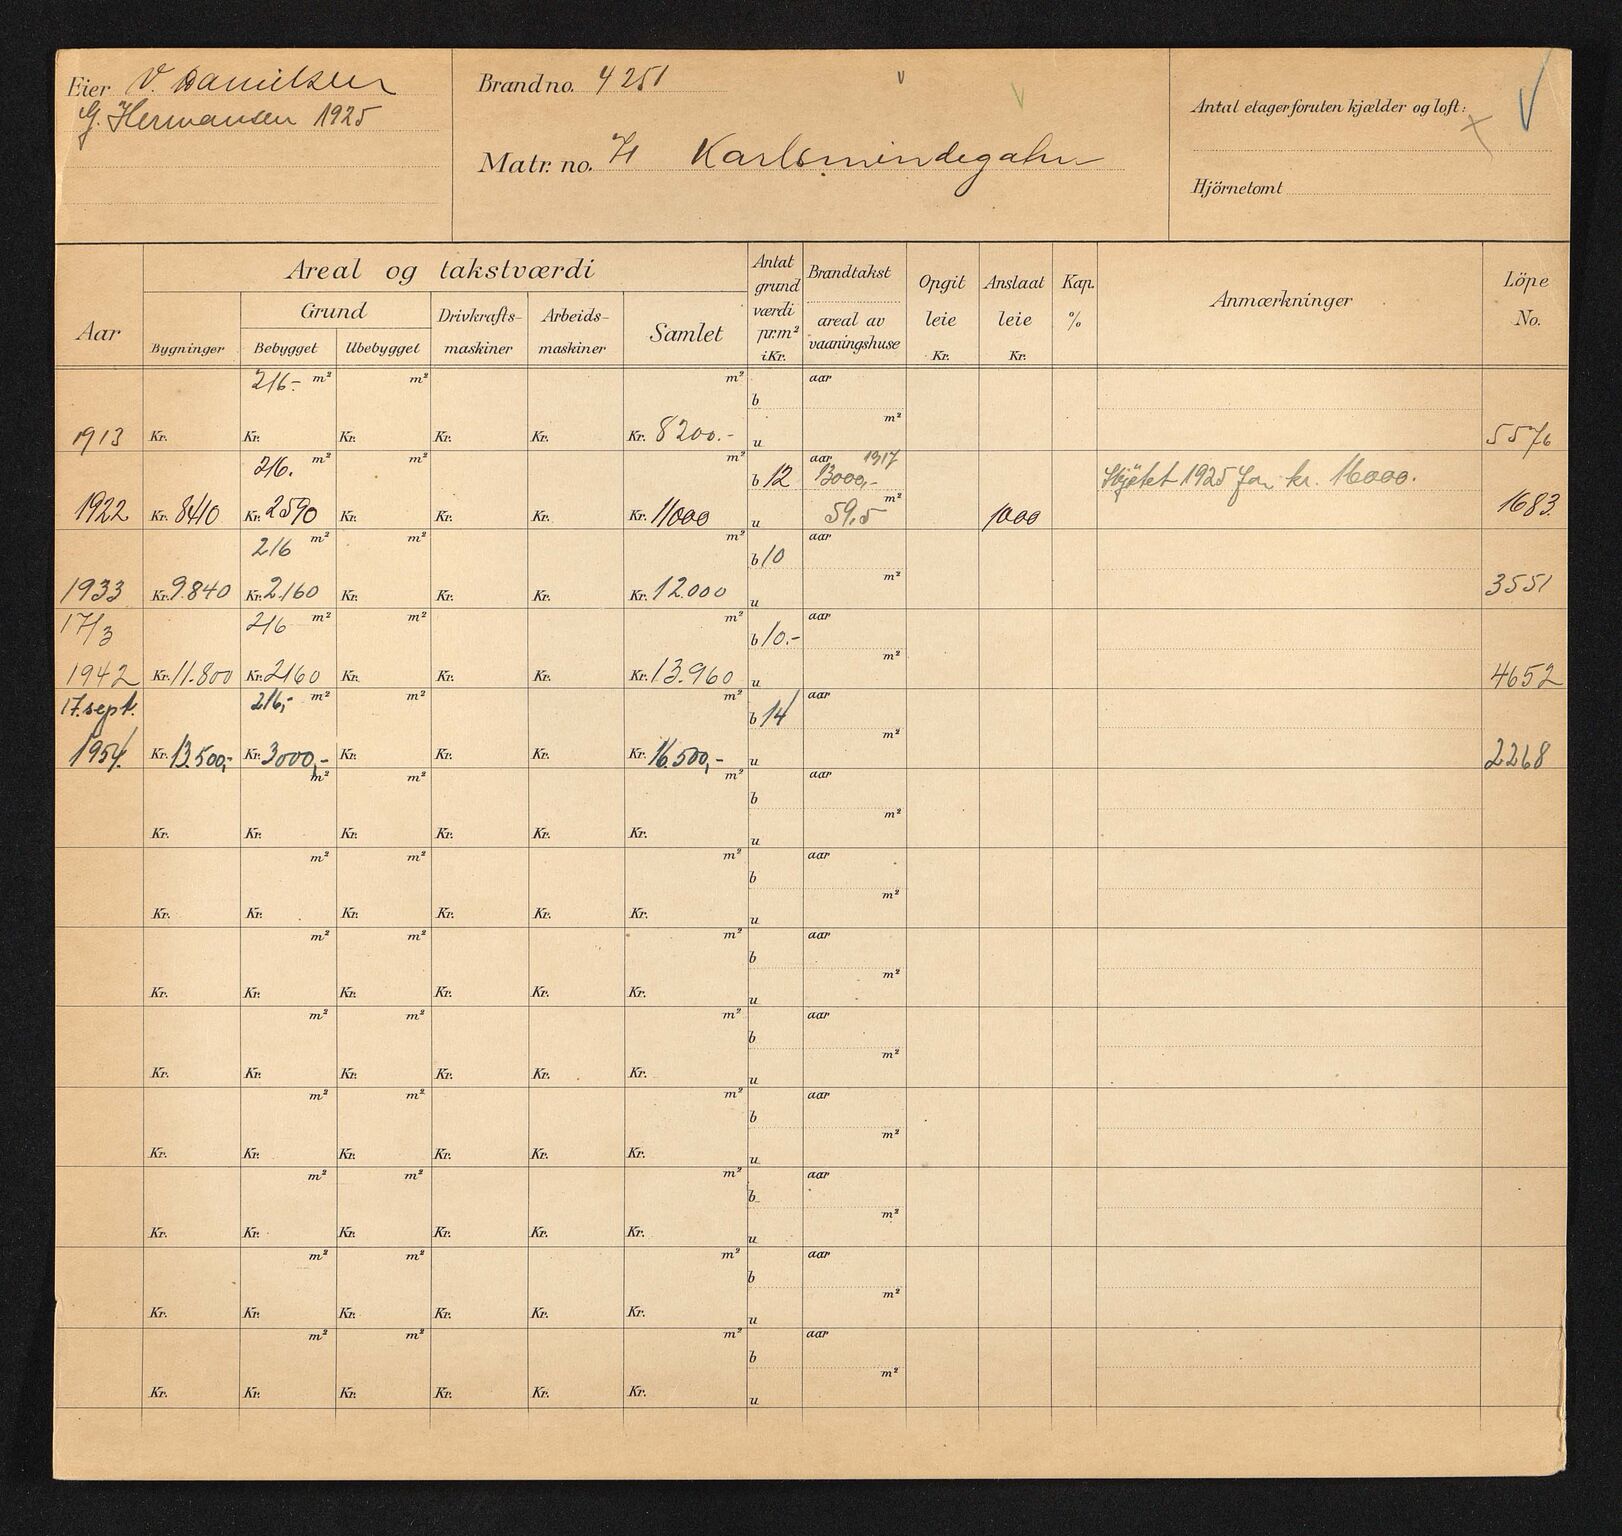 Eier V. Danielsen
G. Hermansen 1925
Brandno. 4251
Matr. no. 71 Karlsmindegaten
Antal etager foruten kjælder og loft:
Hjörnetomt
Aar
Areal og takstværdi
Bygninger
Grund
Bebygget Ubebygget
Drivkrafts-maskiner
Arbeids-maskiner
Samlet
Antal grundværdi pr. m² i Kr.
Brandtakst
areal av vaaningshuse
Opgit leie Kr.
Anslaat leie Kr.
Kap. %
Anmærkninger
Löpe No.
216.- m² m² m² b aar
1913 Kr. Kr. Kr. Kr. Kr. Kr. 8200.- u m² 5576
216. m² m² m² b 12 aar 1917 13000,- Skjötet 1925 for kr. 16000.
1922 Kr. 8410 Kr. 2590 Kr. Kr. Kr. Kr. 11000 u 59,5 m² 1000 1683
216 m² m² m² b 10 aar
1933 Kr. 9.840 Kr. 2.160 Kr. Kr. Kr. Kr. 12.000 u m² 3551
17/3 216 m² m² m² b 10.- aar
1942 Kr. 11.800 Kr. 2160 Kr. Kr. Kr. Kr. 13.960 u m² 4652
17. sept. 216,- m² m² m² b 14 aar
1954. Kr. 13.500,- Kr. 3000,- Kr. Kr. Kr. Kr. 16.500,- u m² 2268
m² m² m² b aar
Kr. Kr. Kr. Kr. Kr. Kr. u m²
m² m² m² b aar
Kr. Kr. Kr. Kr. Kr. Kr. u m²
m² m² m² b aar
Kr. Kr. Kr. Kr. Kr. Kr. u m²
m² m² m² b aar
Kr. Kr. Kr. Kr. Kr. Kr. u m²
m² m² m² b aar
Kr. Kr. Kr. Kr. Kr. Kr. u m²
m² m² m² b aar
Kr. Kr. Kr. Kr. Kr. Kr. u m²
m² m² m² b aar
Kr. Kr. Kr. Kr. Kr. Kr. u m²
m² m² m² b aar
Kr. Kr. Kr. Kr. Kr. Kr. u m²